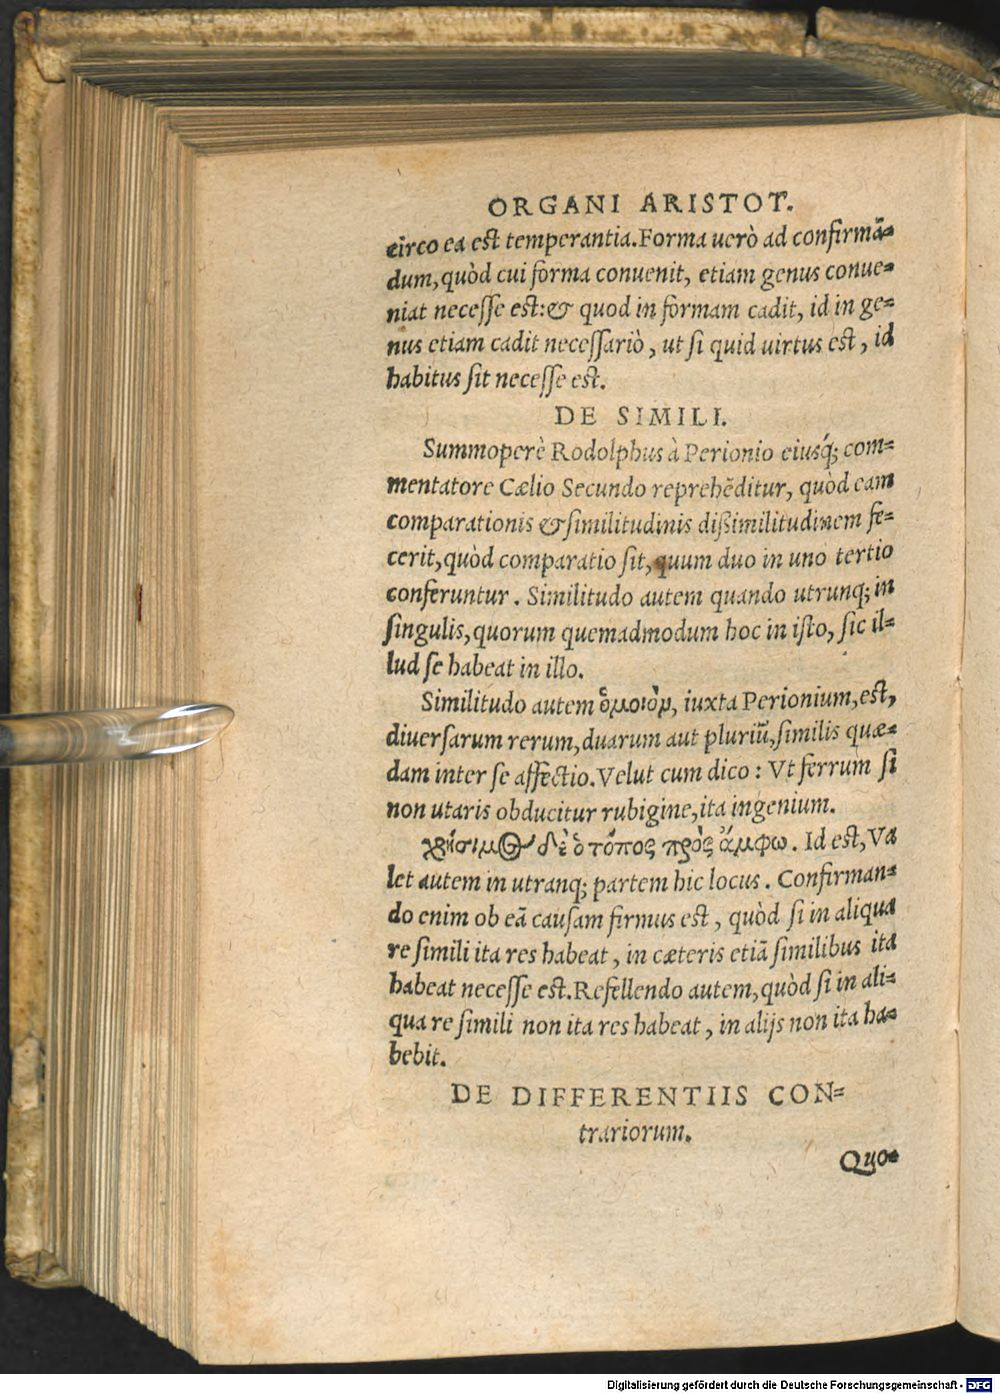 ORGANI ARISTOT.
circo ea est temperantia. Forma uerò ad confirmā=
dum, quòd cui forma conuenit, etiam genus conue=
niat necesse est: & quod in formam cadit, id in ge=
nus etiam cadit necessariò, ut si quid uirtus est, id
habitus sit necesse est.
DE SIMILI.
Summoperè Rodolphus à Perionio eiusq́; com=
mentatore Cælio Secundo reprehēditur, quòd eam
comparationis & similitudinis dißimilitudinem fe=
cerit, quòd comparatio sit, quum duo in uno tertio
conferuntur. Similitudo autem quando utrunq; in
singulis, quorum quemadmodum hoc in isto, sic il=
lud se habeat in illo.
Similitudo autem ὅμοιόν, iuxta Perionium, est,
diuersarum rerum, duarum aut pluriū, similis quæ=
dam inter se affectio. Velut cum dico: Vt ferrum si
non utaris obducitur rubigine, ita ingenium.
χρήσιμος δὲ ὁ τόπος πρὸς ἄμφω. Id est, Va
let autem in utranq; partem hic locus. Confirman=
do enim ob eā causam firmus est, quòd si in aliqua
re simili ita res habeat, in cæteris etiā similibus ita
habeat necesse est. Refellendo autem, quòd si in ali=
qua re simili non ita res habeat, in alijs non ita ha=
bebit.
DE DIFFERENTIIS CON=
trariorum.
Quo=
Digitalisierung gefördert durch die Deutsche Forschungsgemeinschaft - DFG